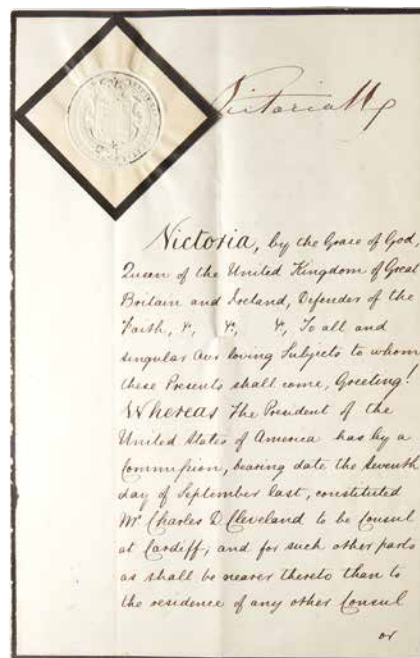 Victoria R
Victoria, by the Grace of God,
Queen of the United Kingdom of Great
Britain and Ireland, Defender of the
Faith, &, &, &, To all and
singular Our loving Subjects to whom
these Presents shall come, Greeting!
Whereas The President of the
United States of America has by a
Commission, bearing date the Seventh
day of September last, constituted
Mr Charles D. Cleveland to be Consul
at Cardiff; and for such other parts
as shall be nearer thereto than to
the residence of any other Consul
or